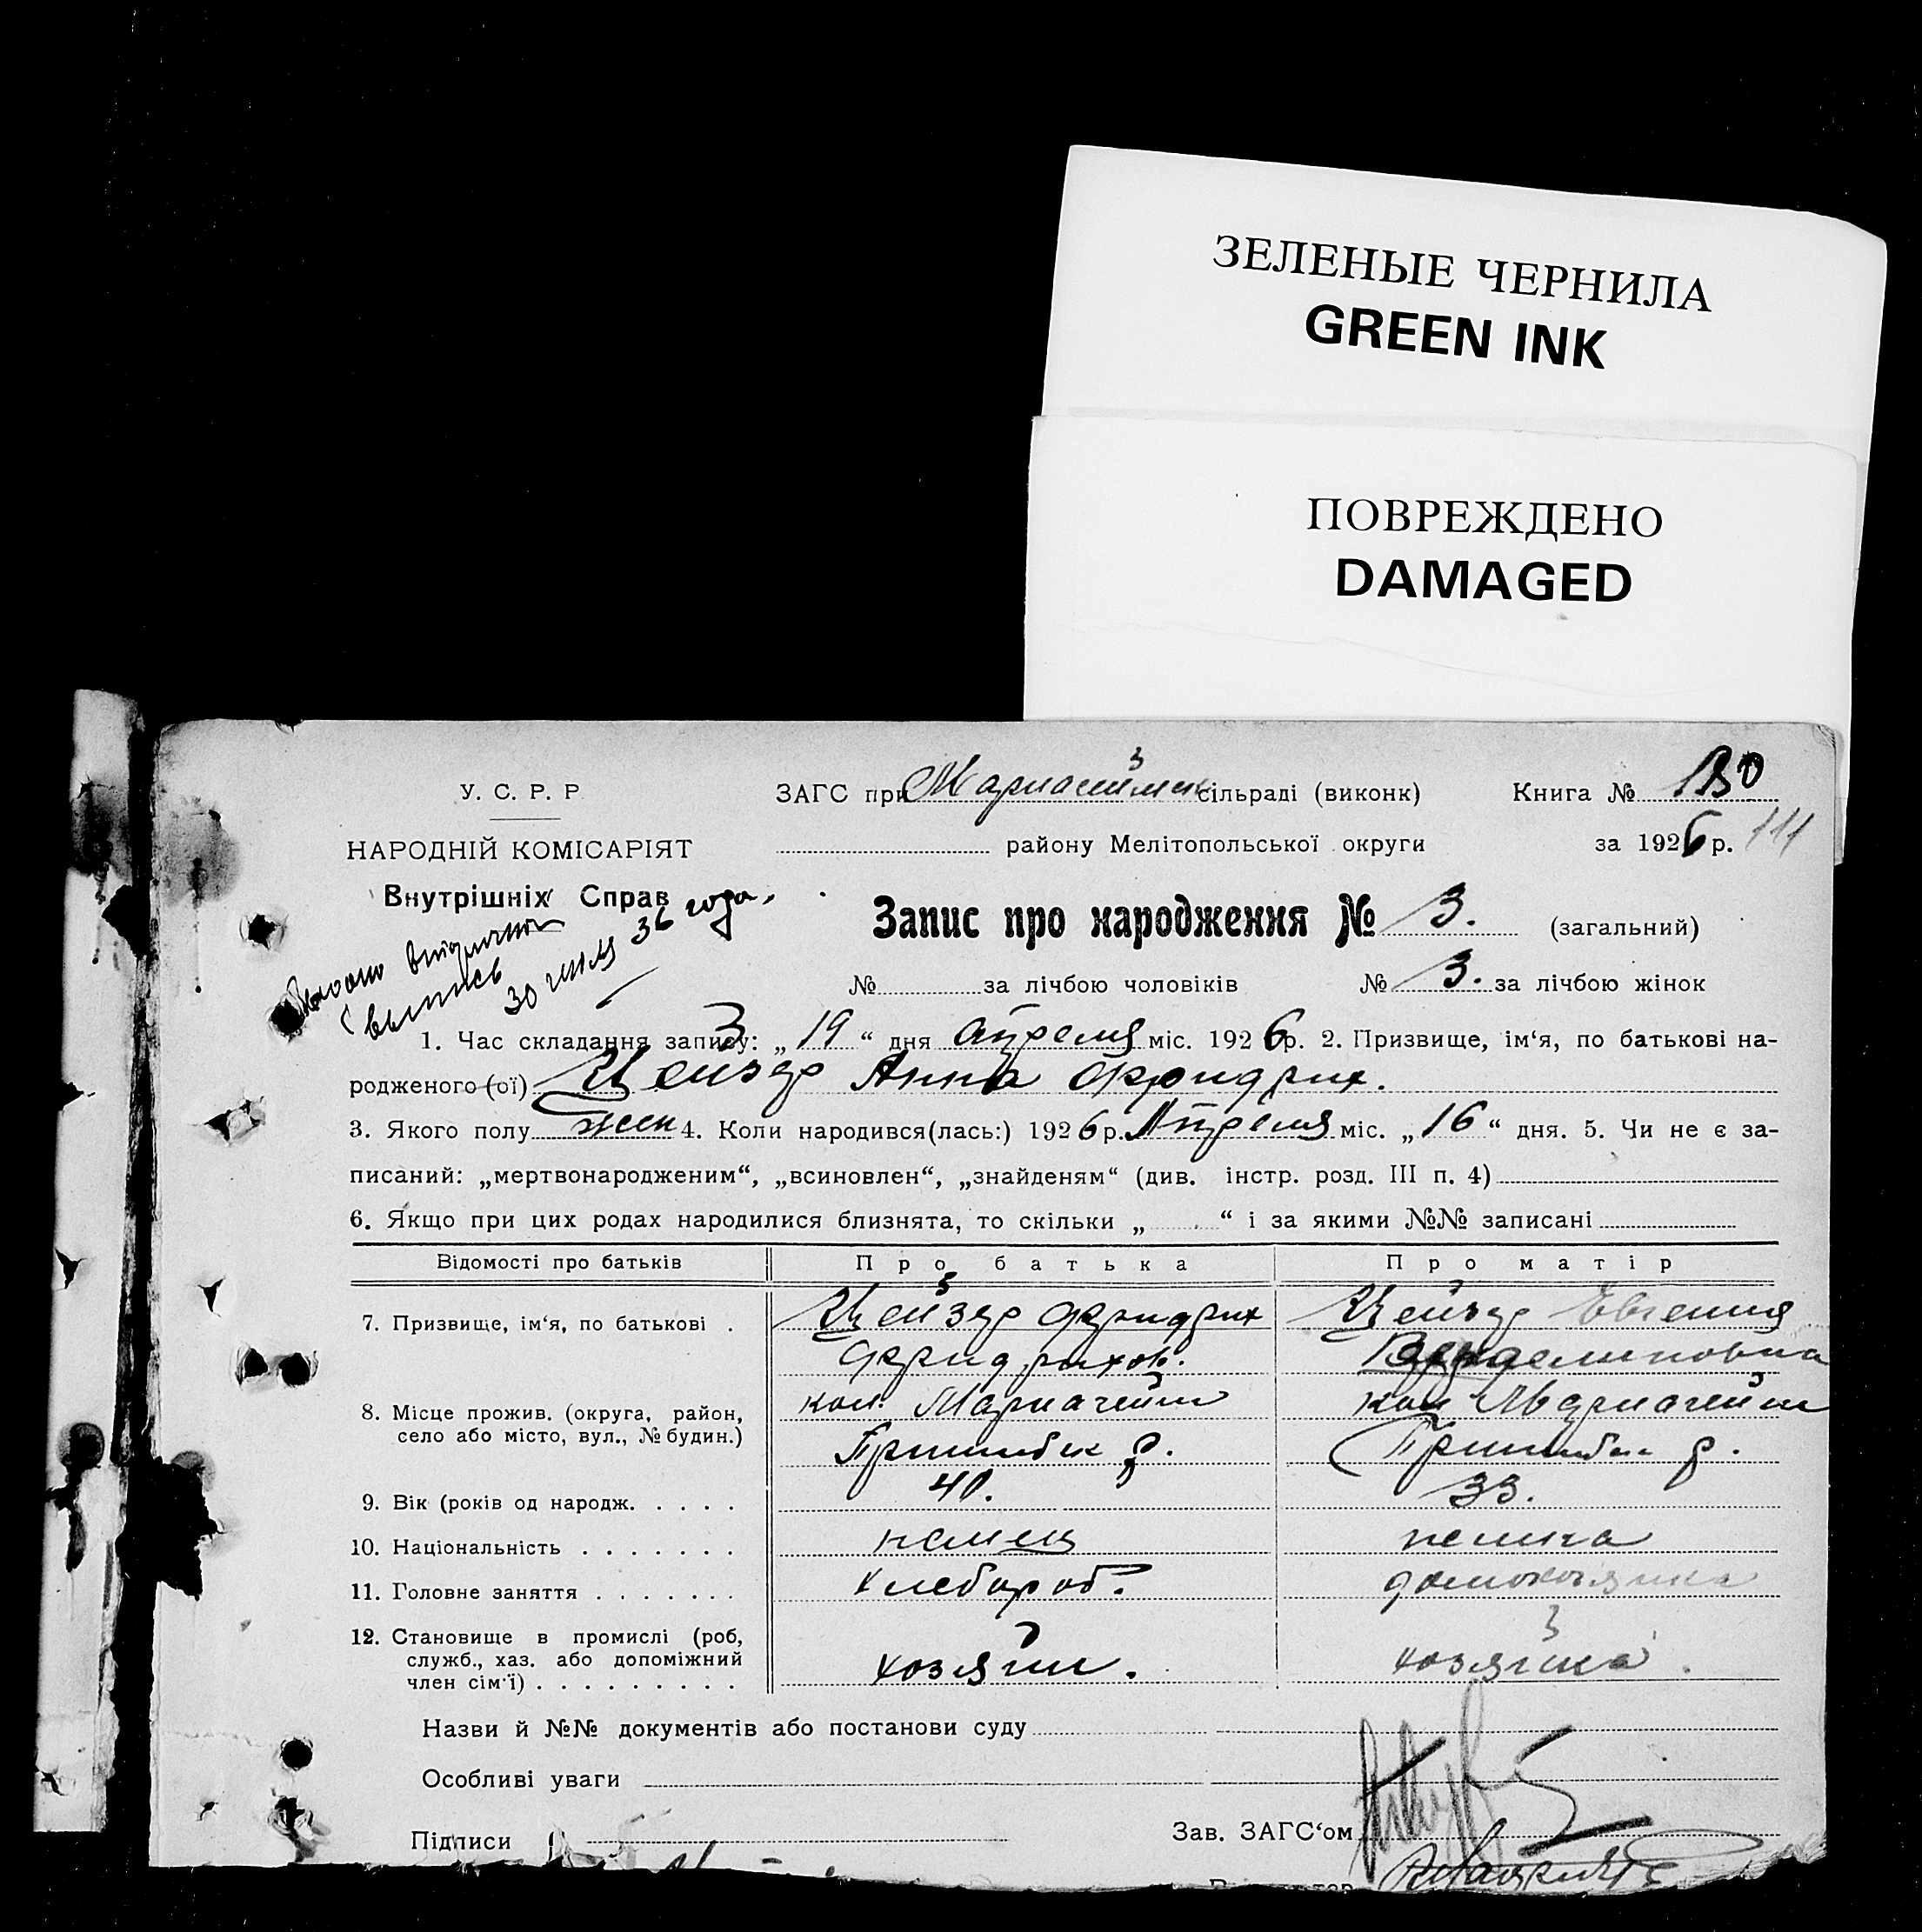 ЗЕЛЕНЫЕ ЧЕРНИЛА
GREEN INK
ПОВРЕЖДЕНО
DAMAGED
У. С. Р. Р
НАРОДНІЙ КОМІСАРІЯТ
Внутрішніх Справ
выпись
30 июля 36 года.
ЗАГС при сільраді (виконк)
Книга №
району Мелітопольської округи
за 1926 р. 111
Запис про народження № 3. (загальний)
№ за лічбою чоловіків № 3. за лічбою жінок
1. Час складання запису: „19“ дня Апреля міс. 1926 р. 2. Призвище, ім‘я, по батькові на-
родженого (ої) Цейзер Анна Фридрих.
3. Якого полу жен 4. Коли народився(лась:) 1926 р. Апреля міс. „16“ дня. 5. Чи не є за-
писаний: „мертвонародженим“, „всиновлен“, „знайденям“ (див. інстр. розд. III п. 4)
6. Якщо при цих родах народилися близнята, то скільки „ “ і за якими №№ записані
Відомості про батьків Про батька Про матір
7. Призвище, ім‘я, по батькові . Цейзер Фридрих Цейзер Евгения
Фридрихов.
8. Місце прожив. (округа, район, кол. Мариагейм кол Мариагейм
село або місто, вул., № будин.) Пришибск р. Пришибск р.
9. Вік (років од народж. . . . . 40. 33.
10. Національність . . . . . . . немец немка
11. Головне заняття . . . . . . . хлебороб. домохозяйка
12. Становище в промислі (роб,
служб., хаз. або допоміжний хозяин. хозяйка.
член сім‘ї) . . . . . . . . .
Назви й №№ документів або постанови суду
Особливі уваги
Підписи
Зав. ЗАГС‘ом